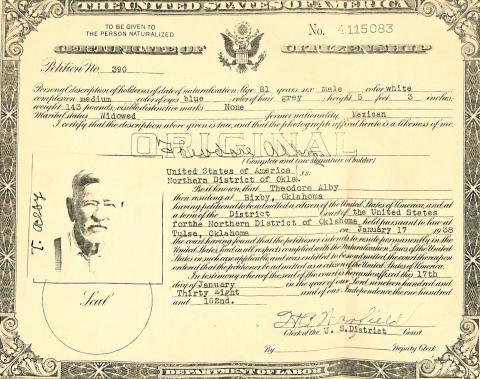 THE UNITED STATES OF AMERICA
TO BE GIVEN TO
THE PERSON NATURALIZED
No. 4115083
CERTIFICATE OF CITIZENSHIP
Petition No. 390
Personal description of holder as of date of naturalization: Age 81 years sex male color white
complexion medium color of eyes blue color of hair grey height 5 feet 3 inches;
weight 143 pounds; visible distinctive marks None
Marital status Widowed former nationality Mexican
I certify that the description above given is true, and that the photograph affixed hereto is a likeness of me.
ORIGINAL
Theodore Alby
(Complete and true signature of holder)
United States of America
Northern District of Okla. ss:
Be it known, that Theodore Alby
then residing at Bixby, Oklahoma
having petitioned to be admitted a citizen of the United States of America, and at
a term of the District Court of the United States
for the Northern District of Oklahoma held pursuant to law at
Tulsa, Oklahoma on January 17 1938
the court having found that the petitioner intends to reside permanently in the
United States, had in all respects complied with the Naturalization Laws of the United
States in such case applicable and was entitled to be so admitted, the court thereupon
ordered that the petitioner be admitted as a citizen of the United States of America.
In testimony whereof the seal of the court is hereunto affixed this 17th
day of January in the year of our Lord nineteen hundred and
Thirty eight and of our Independence the one hundred
and 162nd.
T. Alby
Seal
Clerk of the U. S. District Court.
By Deputy Clerk.
DEPARTMENT OF LABOR